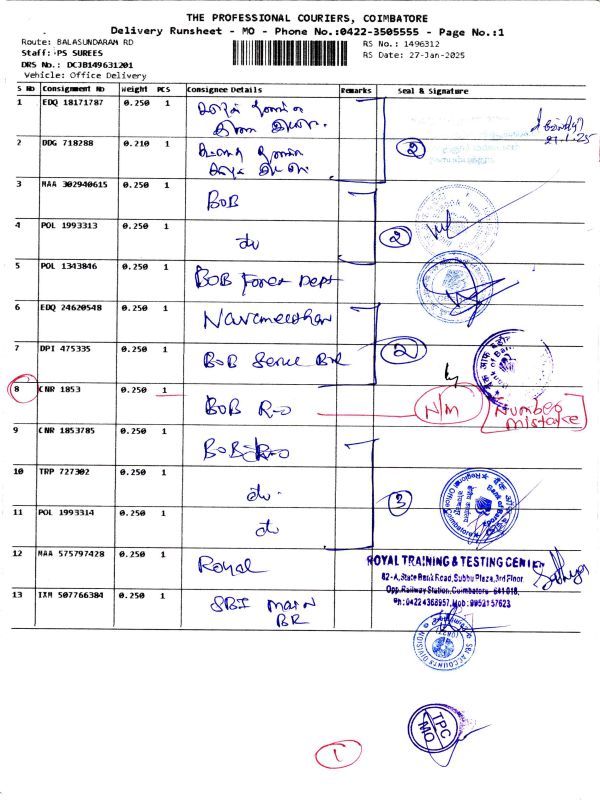 THE PROFESSIONAL COURIERS, COIMBATORE
Delivery Runsheet - MO - Phone No.:0422-3505555 - Page No.:1
Route: BALASUNDARAM RD
RS No.: 1496312
Staff: PS SUREES
RS Date: 27-Jan-2025
DRS No.: DCJB149631201
Vehicle: Office Delivery
S No Consignment No Weight PCS Consignee Details Remarks Seal & Signature
1 EDQ 18171787 0.250 1
27.1.25
2 DDG 718288 0.210 1
2
3 MAA 302940615 0.250 1 BOB
4 POL 1993313 0.250 1 do
2
5 POL 1343846 0.250 1 BOB Forex Dept
6 EDQ 24620548 0.250 1
7 DPI 475335 0.250 1 BOB
2
8 CNR 1853 0.250 1 BOB R-O N/M Number mistake
9 CNR 1853785 0.250 1 BOB R-O
10 TRP 727302 0.250 1 do
3
11 POL 1993314 0.250 1 do
12 MAA 575797428 0.250 1 Royal
ROYAL TRAINING & TESTING CENTER
82-A, State Bank Road, Subbu Plaza, 3rd Floor
Opp. Railway Station, Coimbatore - 641 018.
Ph: 0422 4368957, Mob: 9952157623
13 IXM 507766384 0.250 1 SBI MAIN
BR
SBI ACCOUNTS DIVISION
TPC
MO
1